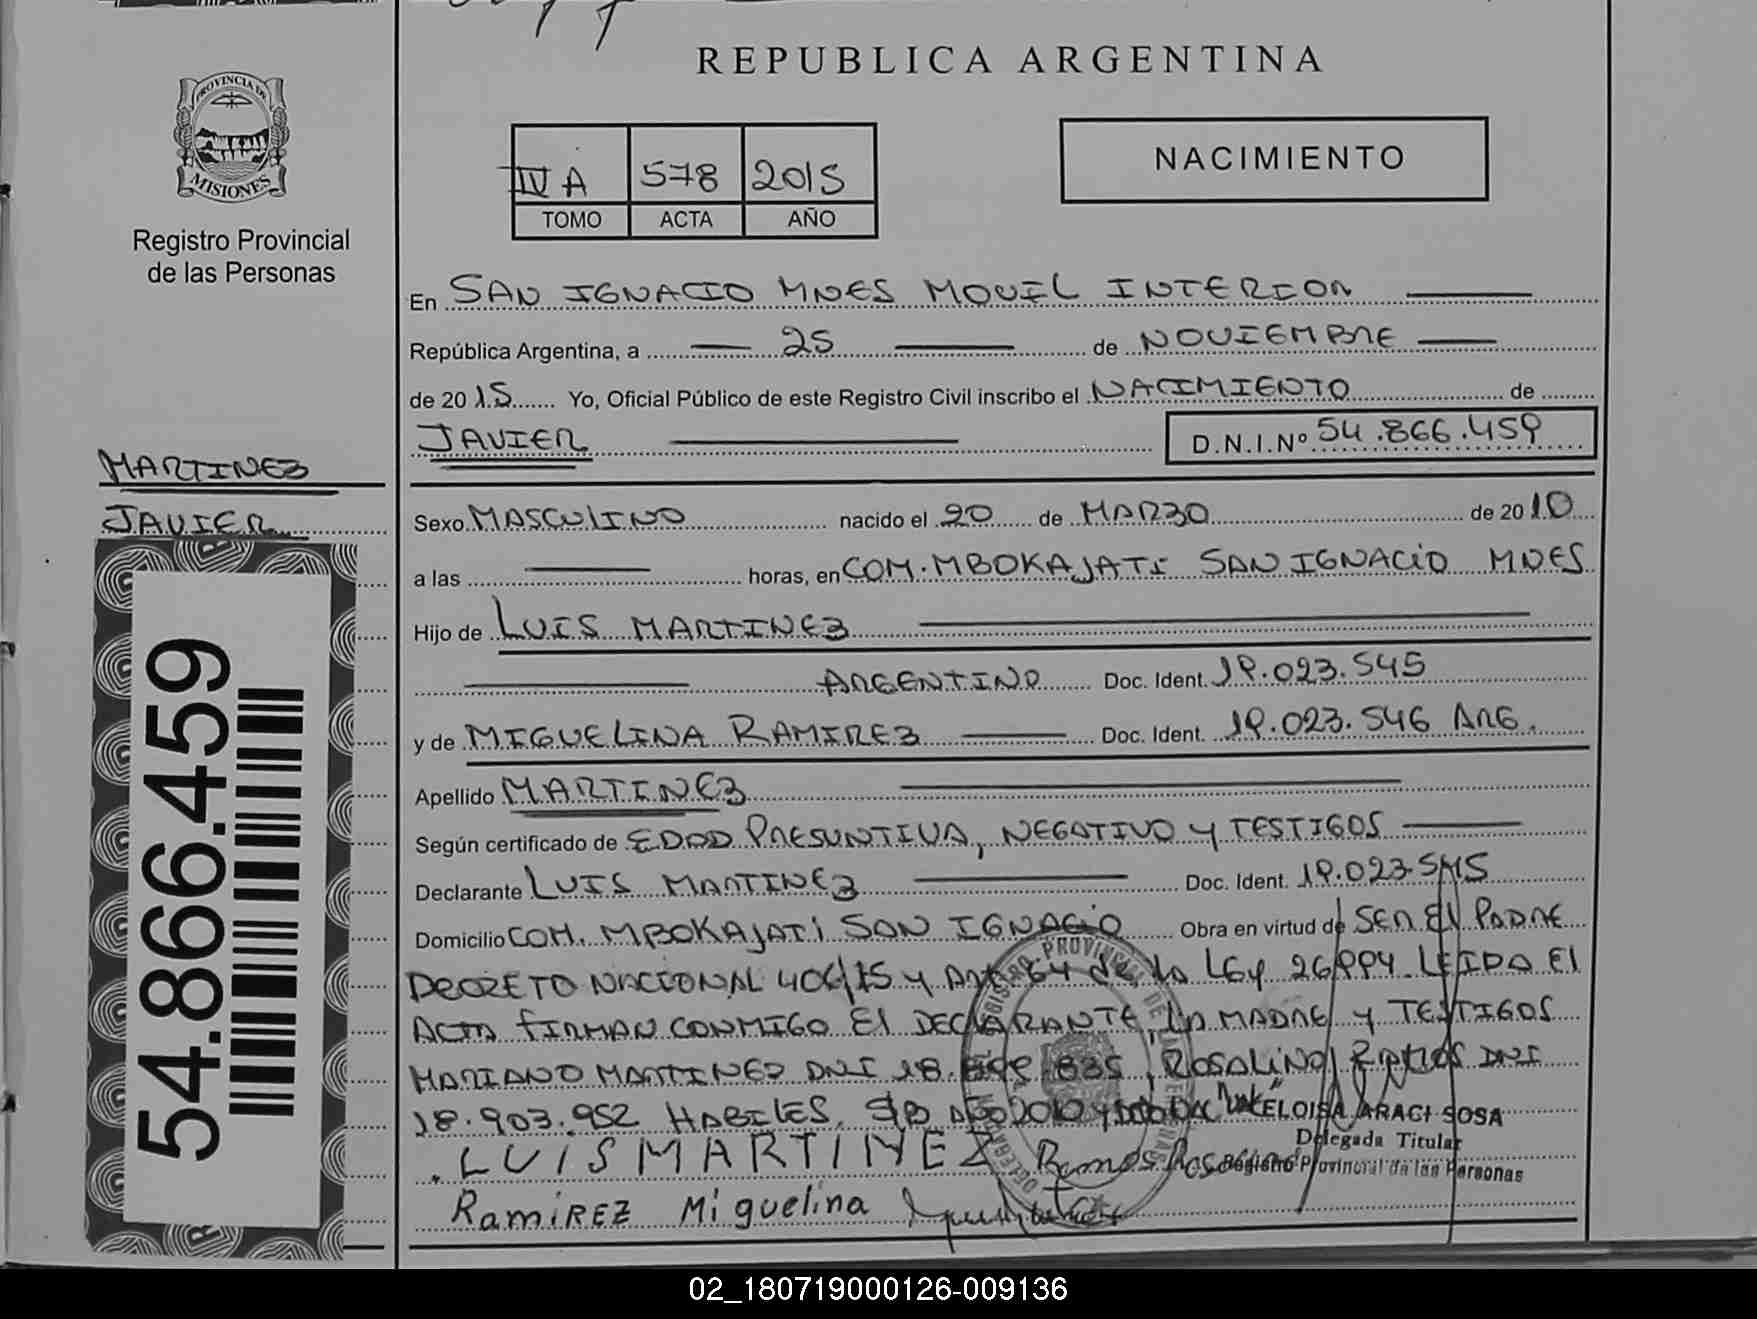 REPUBLICA ARGENTINA
PROVINCIA DE
MISIONES
Registro Provincial
de las Personas
IV A 578 2015
TOMO ACTA AÑO
NACIMIENTO
En SAN IGNACIO MNES MOVIL INTERIOR
República Argentina, a 25 de NOVIEMBRE
de 2015 Yo, Oficial Público de este Registro Civil inscribo el NACIMIENTO de
JAVIER D.N.I.Nº 54.866.459
MARTINEZ
JAVIER
Sexo MASCULINO nacido el 20 de MARZO de 2010
a las horas, en COM. MBOKAJATI SAN IGNACIO MNES
Hijo de LUIS MARTINEZ
ARGENTINO Doc. Ident. 19.023.545
y de MIGUELINA RAMIREZ Doc. Ident. 19.023.546 ARG.
Apellido MARTINEZ
Según certificado de EDAD PRESUNTIVA, NEGATIVO Y TESTIGOS
Declarante LUIS MARTINEZ Doc. Ident. 19.023.545
Domicilio COM. MBOKAJATI SAN IGNACIO Obra en virtud de SER El PADRE
DECRETO NACIONAL 406/15 y Art 64 de la LEy 26994 LEIDA El
ACTA FIRMAN CONMIGO El DECLARANTE, LA MADRE y TESTIGOS
MARIANO MARTINEZ DNI 18. 835, ROSALINO RAMOS DNI
18.903.952 HABILES, S/B
ELOISA ARACI SOSA
Delegada Titular
Registro Provincial de las Personas
LUIS MARTINEZ Ramos
RamiREZ Miguelina
54.866.459
02_180719000126-009136